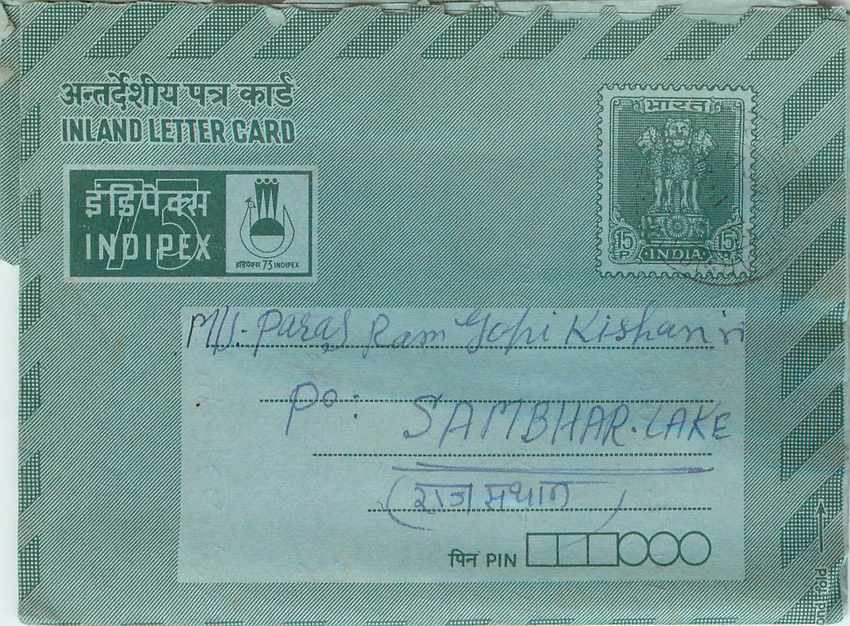 अन्तर्देशीय पत्र कार्ड
INLAND LETTER CARD
इंडिपेक्स
73
INDIPEX
इंडिपेक्स 73 INDIPEX
भारत
15 P. 15 P.
INDIA
M/S. Paras Ram Gopi Kishan
PO:
SAMBHAR. LAKE
(राजस्थान)
पिन PIN
fold